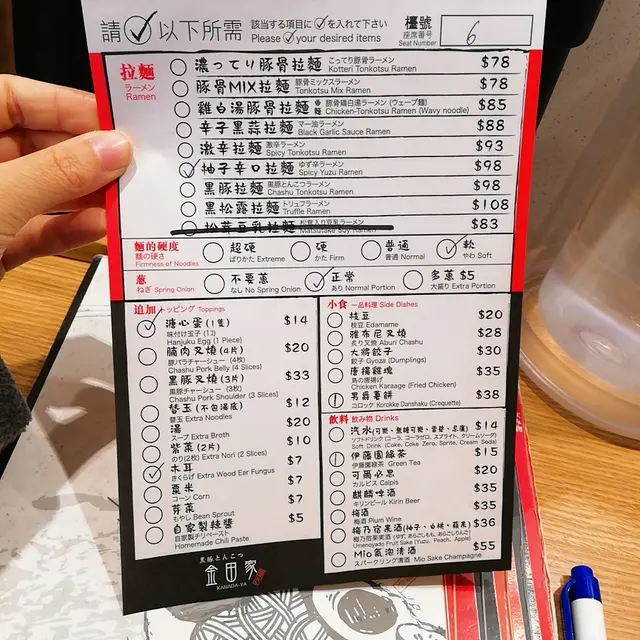 請✓以下所需 該当する項目に✓を入れて下さい
Please ✓ your desired items
檯號
座席番号
Seat Number
6
拉麵
ラーメン
Ramen
濃ってり豚骨拉麵 こってり豚骨ラーメン $78
Kotteri Tonkotsu Ramen
豚骨MIX拉麵 豚骨ミックスラーメン $78
Tonkotsu Mix Ramen
雞白湯豚骨拉麵 豚骨鶏白湯ラーメン (ウェーブ麺) $85
Chicken-Tonkotsu Ramen (Wavy noodle)
辛子黑蒜拉麵 マー油ラーメン $88
Black Garlic Sauce Ramen
激辛拉麵 激辛ラーメン $93
Spicy Tonkotsu Ramen
柚子辛口拉麵 ゆず辛ラーメン $98
Spicy Yuzu Ramen
黑豚拉麵 黒豚とんこつラーメン $98
Chashu Tonkotsu Ramen
黑松露拉麵 トリュフラーメン $108
Truffle Ramen
松茸豆乳拉麵 松茸入り豆乳ラーメン $83
Matsutake Soy Ramen
麵的硬度
麺の硬さ
Firmness of Noodles
超硬
ばりかた Extreme
硬
かた Firm
普通
普通 Normal
軟
やわ Soft
蔥
ねぎ Spring Onion
不要蔥
なし No Spring Onion
正常
あり Normal Portion
多蔥 $5
大盛り Extra Portion
追加 トッピング Toppings
溏心蛋(1隻) $14
味付け玉子 (1コ)
Hanjuku Egg (1 Piece)
腩肉叉燒(4片) $20
豚バラチャーシュー (4枚)
Chashu Pork Belly (4 Slices)
黑豚叉燒(3片) $33
黒豚チャーシュー (3枚)
Chashu Pork Shoulder (3 Slices)
替玉(不包湯底) $12
替玉 Extra Noodles
湯 $20
スープ Extra Broth
紫菜(2片) $10
のり(2枚) Extra Nori (2 Slices)
木耳 $7
きくらげ Extra Wood Ear Fungus
粟米 $7
コーン Corn
芽菜 $7
もやし Bean Sprout
自家製辣醬 $5
自家製チリペースト
Homemade Chili Paste
小食 一品料理 Side Dishes
枝豆 $20
枝豆 Edamame
雅布尼叉燒 $28
炙り叉焼 Aburi Chashu
大將餃子 $30
餃子 Gyoza (Dumplings)
唐揚雞塊 $35
鳥の唐揚げ
Chicken Karaage (Fried Chicken)
男爵薯餅 $38
コロッケ Korokke Danshaku (Croquette)
飲料 飲み物 Drinks
汽水(可樂、無糖可樂、雪碧、忌廉) $14
ソフトドリンク (コーラ、コーラゼロ、スプライト、クリームソーダ)
Soft Drink (Coke, Coke Zero, Sprite, Cream Soda)
伊藤園綠茶 $15
伊藤園緑茶 Green Tea
可爾必思 $20
カルピス Calpis
麒麟啤酒 $35
キリンビール Kirin Beer
梅酒 $35
梅酒 Plum Wine
梅乃宿果酒(柚子、白桃、蘋果) $36
梅乃宿果実酒 (ゆず、あらごしもも、あらごしりんご)
Umenoyado Fruit Sake (Yuzu, Peach, Apple)
Mio氣泡清酒 $55
スパークリング清酒 Mio Sake Champagne
黒豚とんこつ
金田家
KANADA-YA